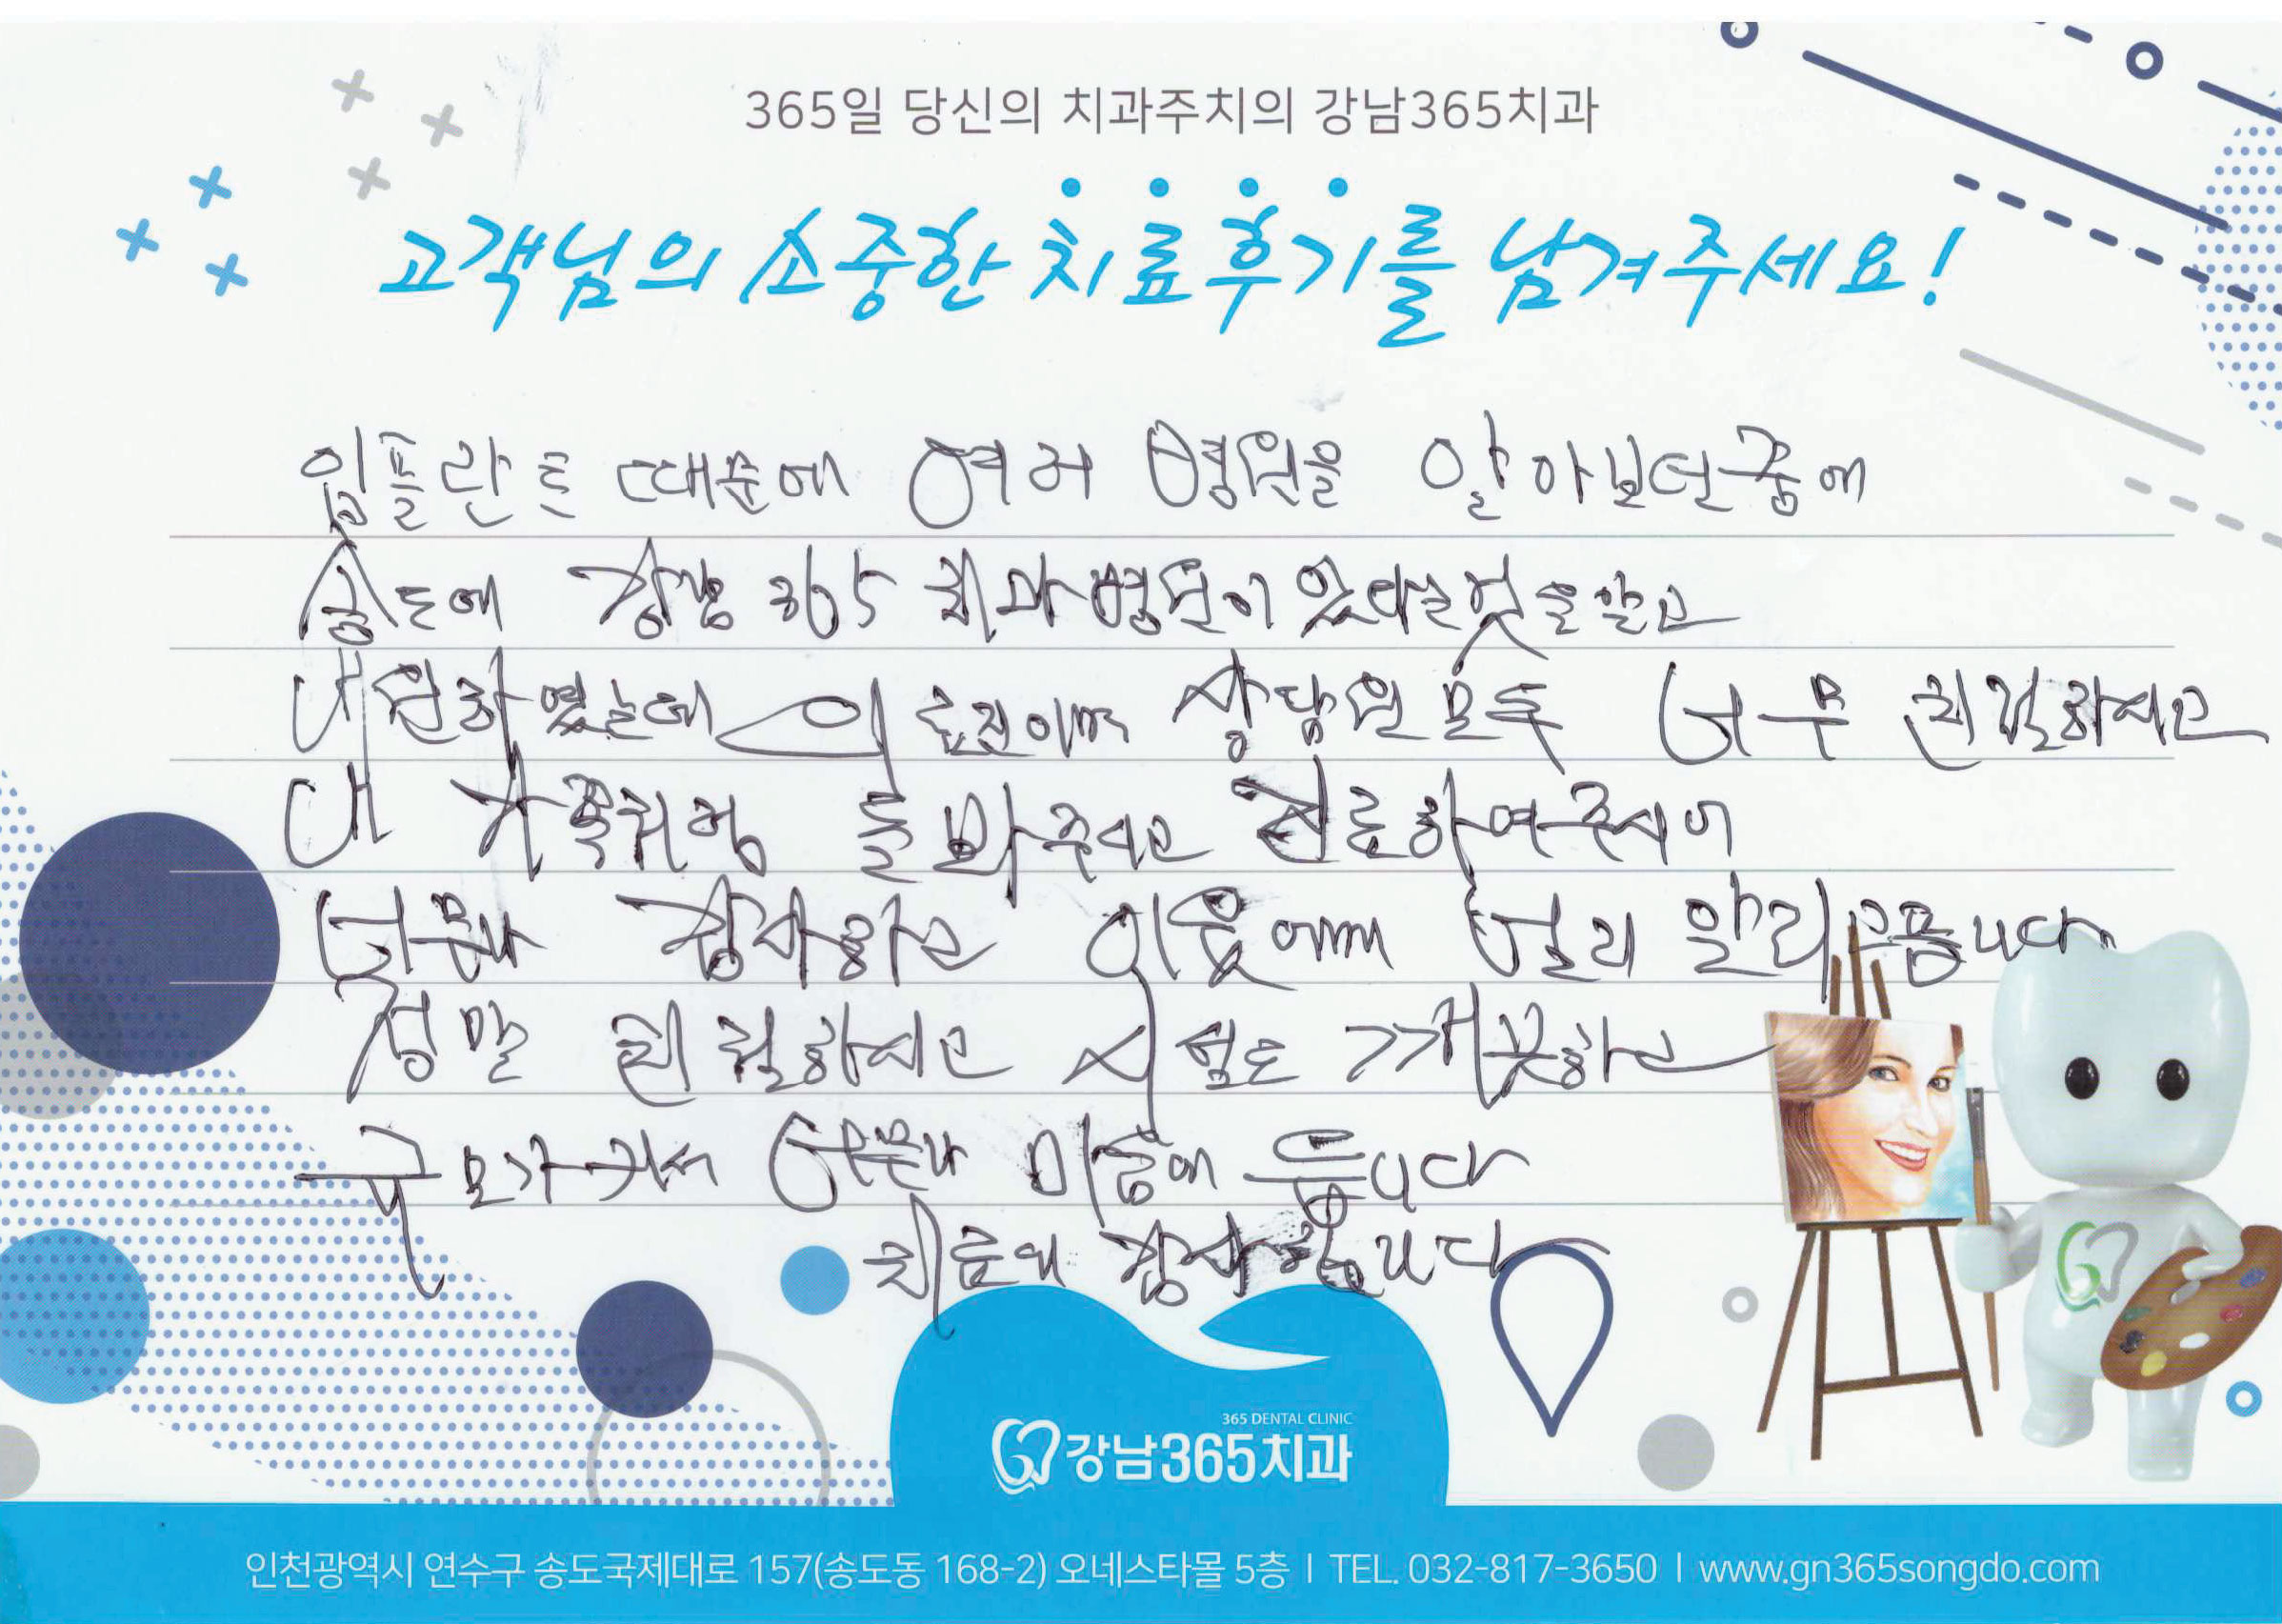 365일 당신의 치과주치의 강남365치과
고객님의 소중한 치료후기를 남겨주세요!
임플란트 때문에 여러 병원을 알아보던중에
송도에 강남 365 치과병원이 있다는것을 알고
내원하였는데 의료진이며 상담원모두 너무 친절하시고
내 가족처럼 돌봐주시고 진료하여주시어
너무나 감사하고 이웃에 널리 알리 니다
정말 친절하시고 시설도 깨끗하고
규모가커서 너무나 마음에 듭니다
치료에 감사합니다
365 DENTAL CLINIC
강남365치과
인천광역시 연수구 송도국제대로 157(송도동 168-2) 오네스타몰 5층 I TEL. 032-817-3650 I www.gn365songdo.com